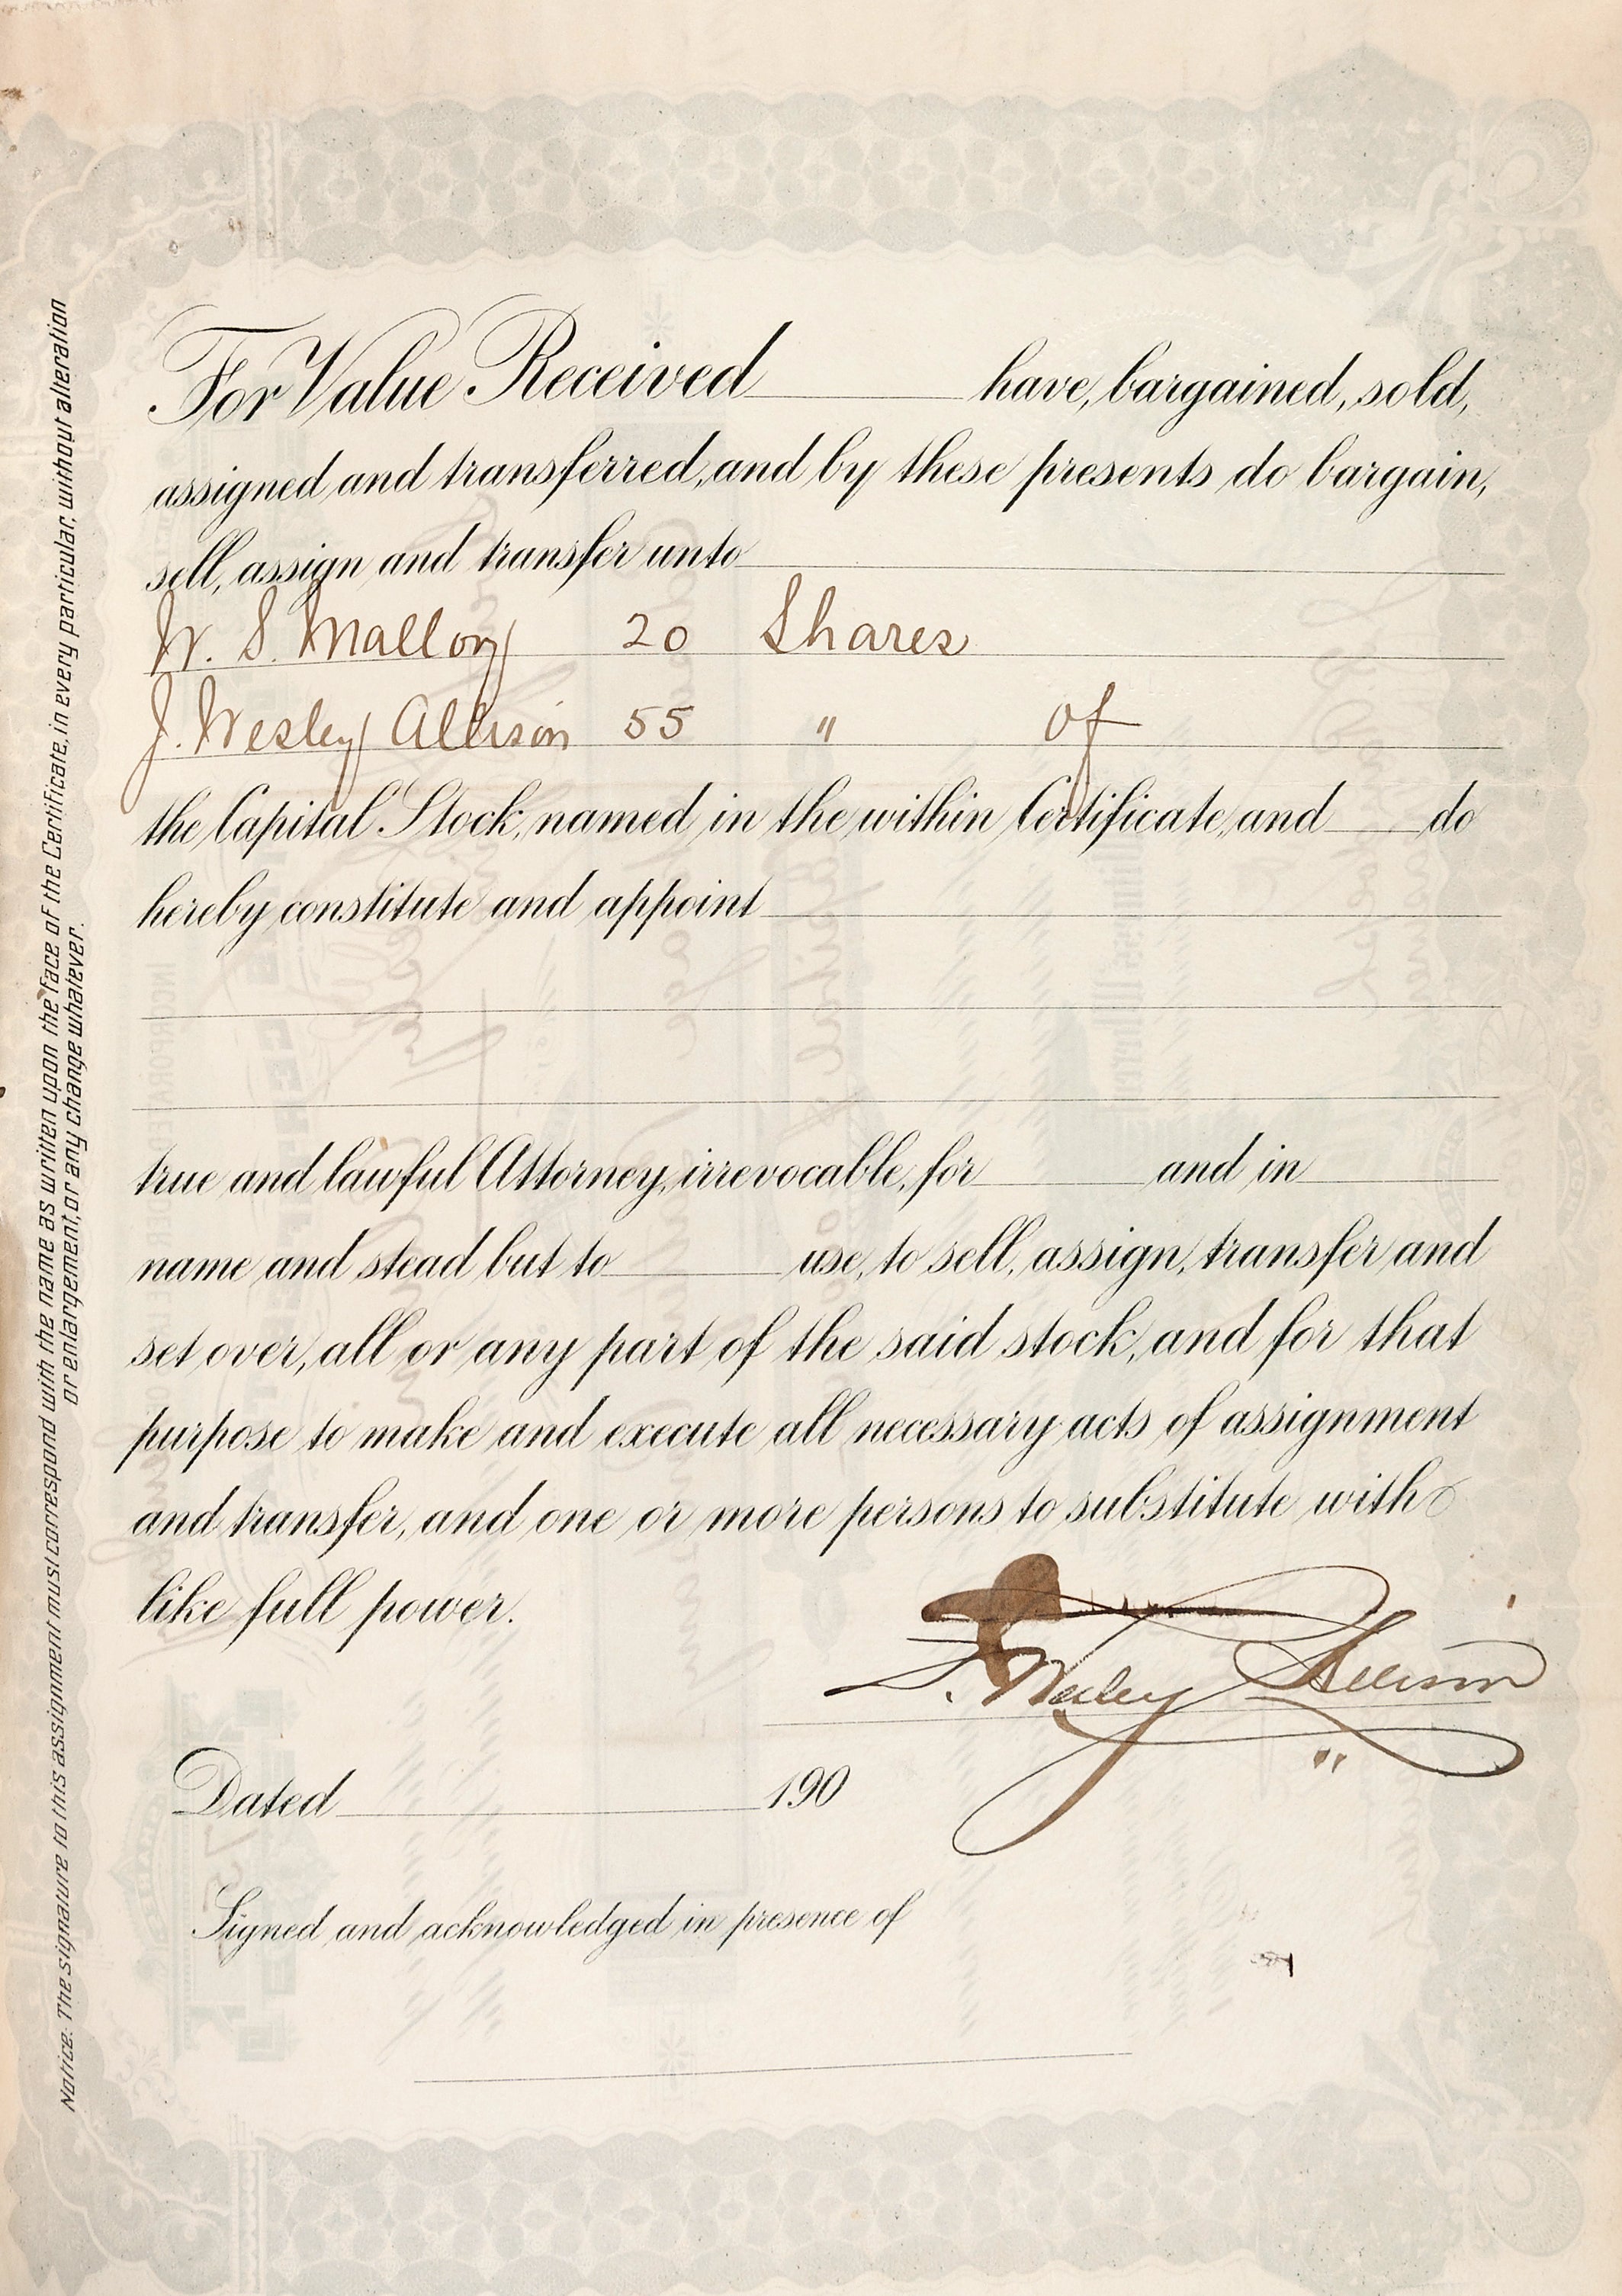 For Value Received have, bargained, sold,
assigned and transferred, and by these presents do bargain,
sell, assign and transfer unto
W. S. Mallory 20 Shares
J. Wesley Allison 55 " of
the Capital Stock, named in the within Certificate, and do
hereby constitute and appoint
true and lawful Attorney, irrevocable, for and in
name and stead but to use, to sell, assign, transfer and
set over, all or any part of the said stock, and for that
purpose to make and execute all necessary acts of assignment
and transfer, and one or more persons to substitute with
like full power.
J. Wesley Allison
Dated 190
Signed and acknowledged in presence of
Notice: The signature to this assignment must correspond with the name as written upon the face of the Certificate, in every particular, without alteration
or enlargement, or any change whatever.